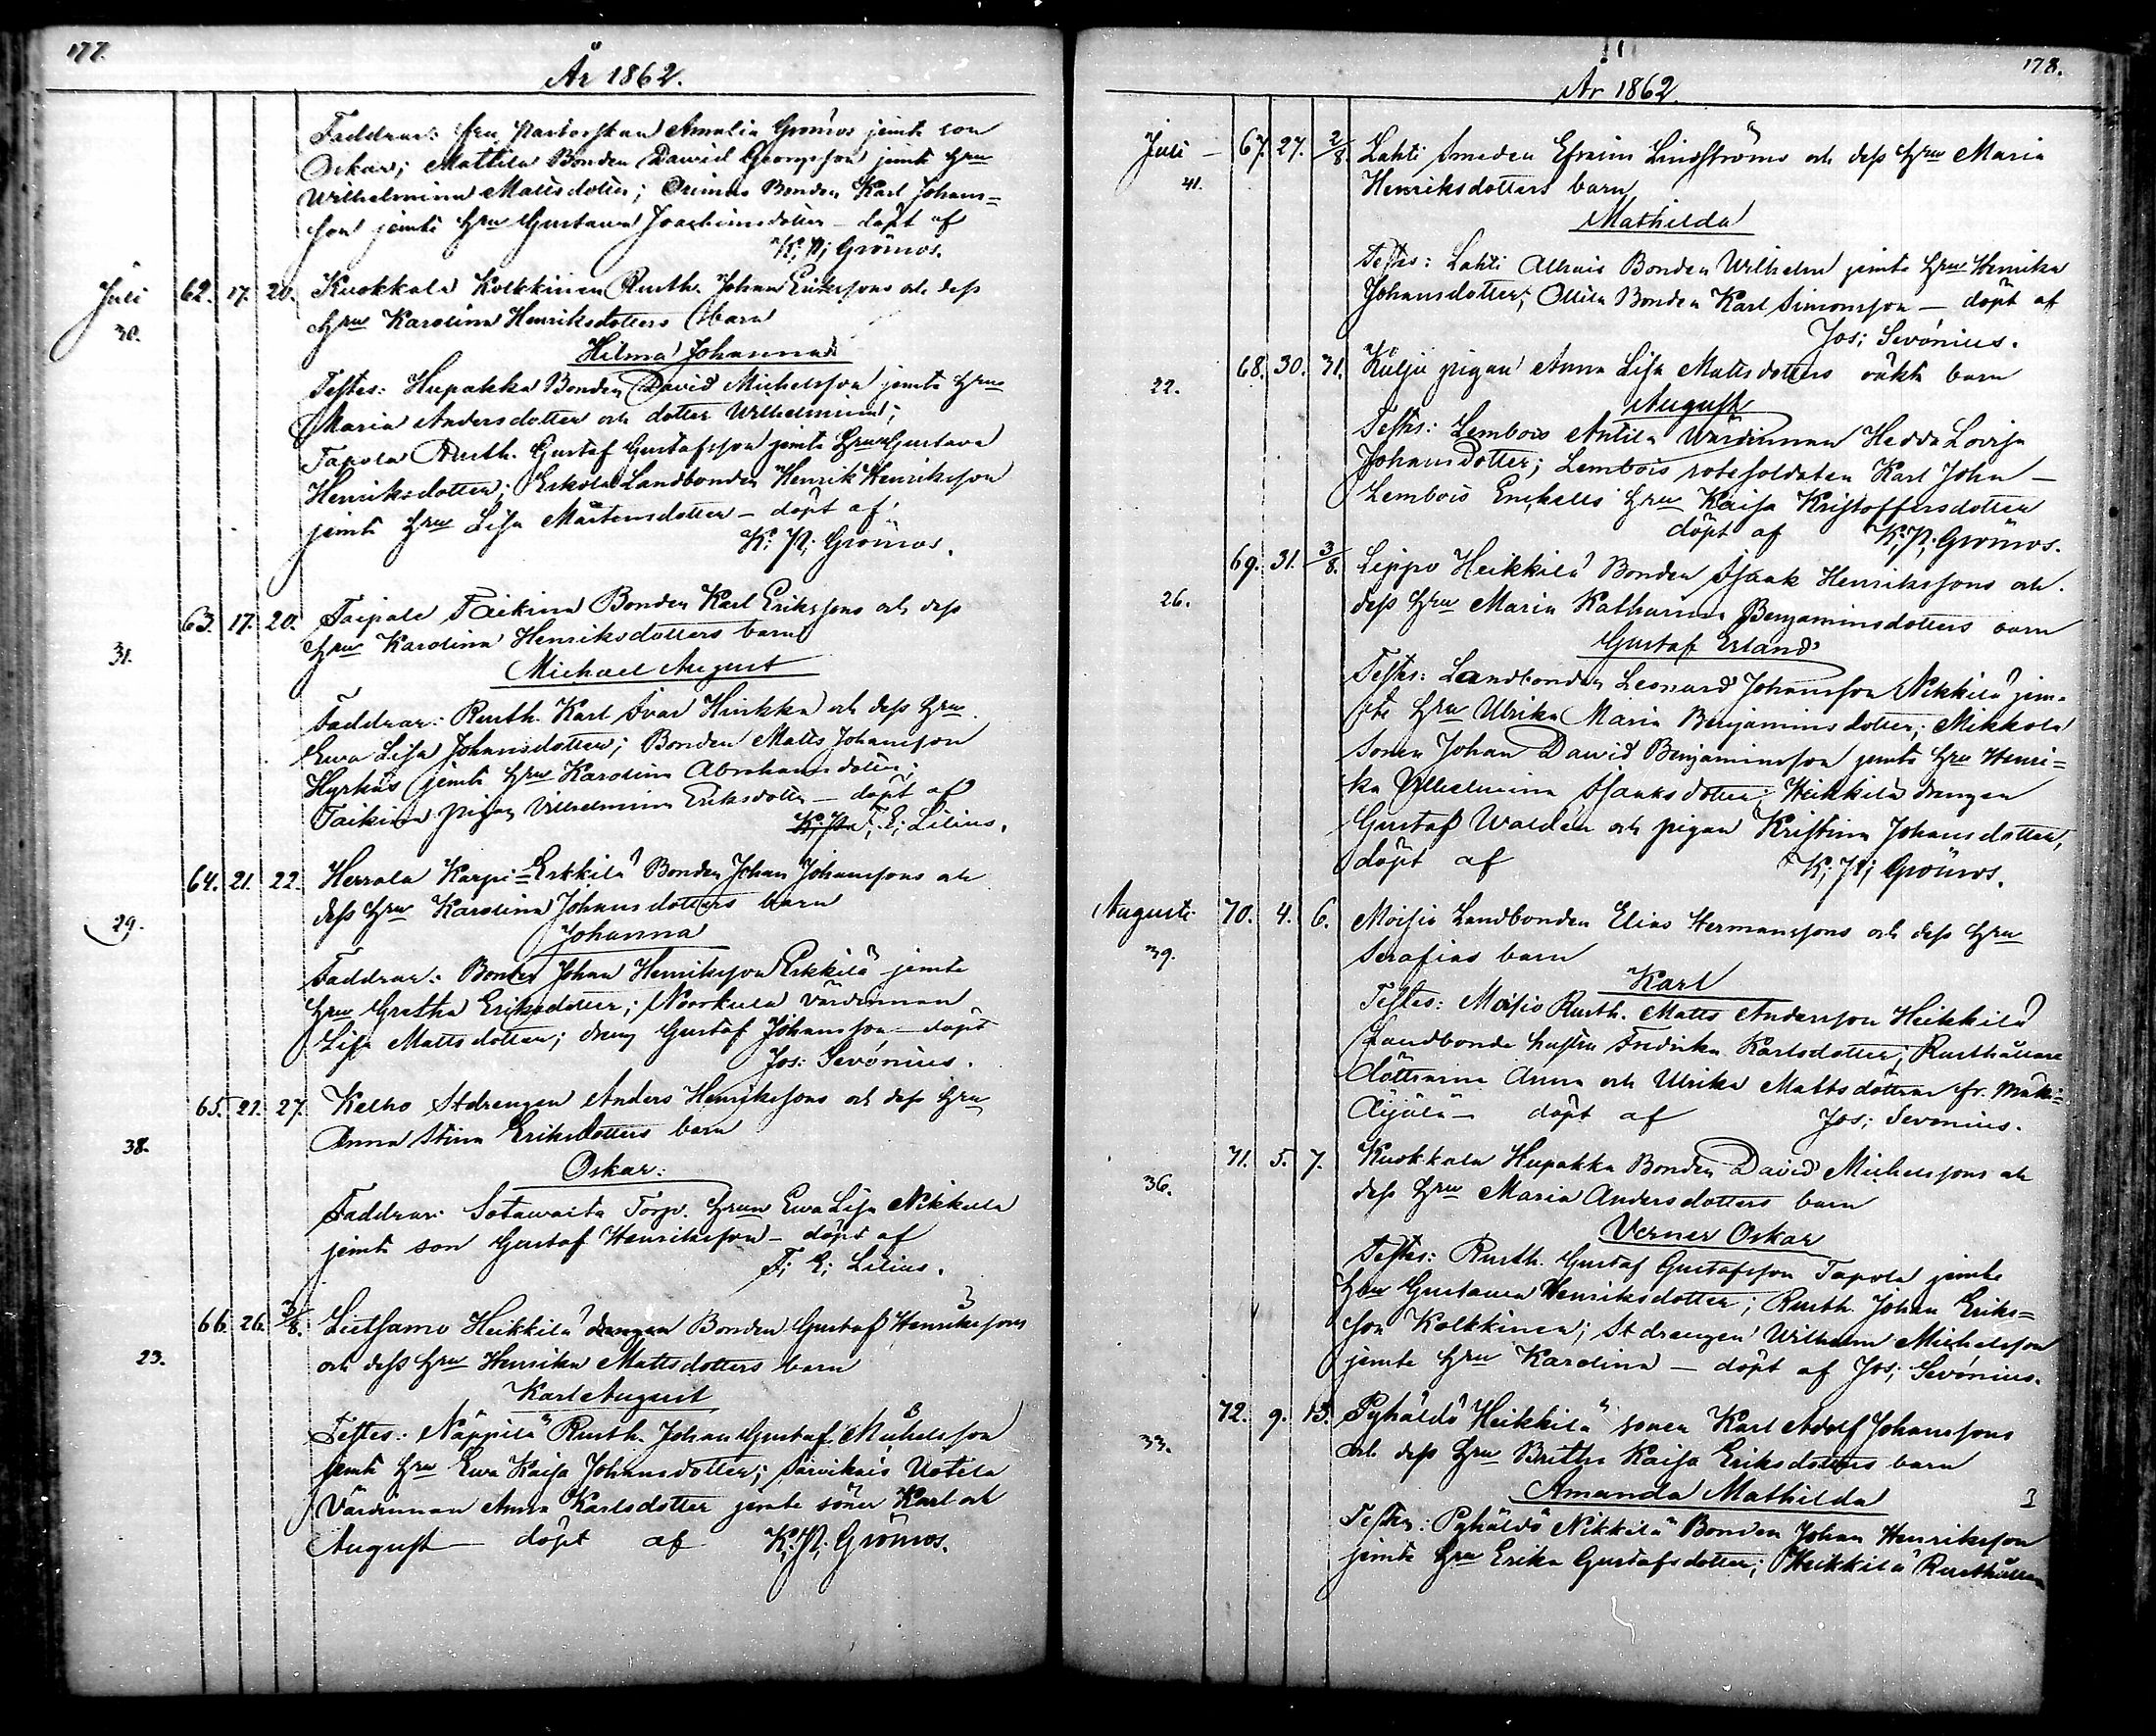 177.
År 1862.
Faddrar: fru Pastorskan Amalia Grönros jemte son
Oskar; Mattila Bonden David Georgsson jemte hru
Wilhelmina Mattsdotter; Bonden Karl Johans=
son jemte hru Gustava Joachimsdotter — döpt af
K; P; Grönros.
Juli 62. 17. 20. Kuokkala Kolkkinen Rusth. Johan Erikssons och dess
30. hru Karolina Henriksdotters barn
Hilma Johanna
Testes: Hupakka Bonden David Michelsson jemte hru
Maria Andersdotter och dotter Wilhelmina;
Tapola Rusth. Gustaf Gustafsson jemte hru Gustava
Henriksdotter; Eskola Landbonden Henrik Henriksson
jemte hru Lisa Mårtensdotter — döpt af
K; P; Grönros.
63. 17. 20. Taipale Taikina Bonden Karl Erikssons och dess
31. hru Karolina Henriksdotters barn
Michael August
Faddrar: Rusth. Karl Ivar Hinkka och dess hru
Ewa Lisa Johansdotter; Bonden Matts Johansson
Hyrkäs jemte hru Karolina Abrahamsdotter;
Taikina pigan Vilhelmina Eriksdotter — döpt af
K; P. F; E; Lilius.
64. 21. 22. Herrala Karpi=Erkkilä Bonden Johan Johanssons och
29. dess hru Karolina Johansdotters barn
Johanna
Faddrar: Bonden Johan Henriksson Erkkilä jemte
hru Gretha Eriksdotter; Noorkula värdinnan
Lisa Mattsdotter; dräng Gustaf Johansson — döpt
Jos: Sevónius.
65. 21. 27. Kelho Stdrengen Anders Henrikssons och dess hru
38. Anna Stina Eriksdotters barn
Oskar.
Faddrar: Sotavaita Torp. hrun Ewa Lisa Nikkula
jemte son Gustaf Henriksson — döpt af
F; E; Lilius.
66. 26. 3/8. Lietsamo Heikkilä drengen Bonden Gustaf Henrikssons
23. och dess hru Henrika Mattsdotters barn
Karl August
Testes: Näppilä Rusth. Johan Gustaf Michelsson
jemte hru Ewa Kaisa Johansdotter; Savikais Uotila
Värdinnan Anna Karlsdotter jemte söner Karl och
August — döpt af K; P; Grönros.
178.
År 1862.
Juli — 67. 27. 2/8. Lahti Smeden Efraim Lindströms och dess hru Maria
41. Henriksdotters barn
Mathilda
Testes: Lahti Alhais Bonden Wilhelm jemte hru Henrika
Johansdotter; Ollila Bonden Karl Simonsson — döpt af
Jos; Sevónius.
68. 30. 31. Kulju pigan Anna Lisa Mattsdotters oäkta barn
22. August
Testes: Lembois Antila Värdinnan Hedda Lovisa
Johansdotter; Lembois rotesoldaten Karl John —
Lembois Enckells hru Kaisa Kristoffersdotter
döpt af K; P; Grönros.
69. 31. 3/8. Leppo Heikkilä Bonden Isaak Henrikssons och
26. dess hru Maria Katharina Benjaminsdotters barn
Gustaf Erland
Testes: Landbonden Leonard Johansson Nikkilä jem-
te hru Ulrika Maria Benjaminsdotter; Mikkola
sonen Johan David Benjaminsson jemte hru Henri=
ka Vilhelmina Isaaksdotter; Heikkilä drengen
Gustaf Waldén och pigan Kristina Johansdotter,
döpt af K; P; Grönros.
Augusti 70. 4. 6. Moisio Landbonden Elias Hermanssons och dess hru
39. Serafias barn
Karl
Testes: Moisio Rusth. Matts Andersson Heikkilä
Landbonde hustru Fredrika Karlsdotter; Rusthållare
döttrarne Anna och Ulrika Mattsdöttrar fr. Mäki=
Äijälä — döpt af Jos; Sevonius.
71. 5. 7. Kuokkala Hupakka Bonden David Michelssons och
36. dess hru Maria Andersdotters barn
Verner Oskar
Testes: Rusth. Gustaf Gustafsson Tapola jemte
hru Gustava Henriksdotter; Rusth. Johan Eriks=
son Kolkkinen; Stdrengen Wilhelm Michelsson
jemte hru Karolina — döpt af Jos; Sevónius.
72. 9. 13. Pyhäldö Heikkilä sonen Karl Adolf Johanssons
33. och dess hru Britha Kaisa Eriksdotters barn
Amanda Mathilda
Testes: Pyhäldö Nikkilä Bonden Johan Henriksson
jemte hru Erika Gustafsdotter; Heikkilä Rusthållaren